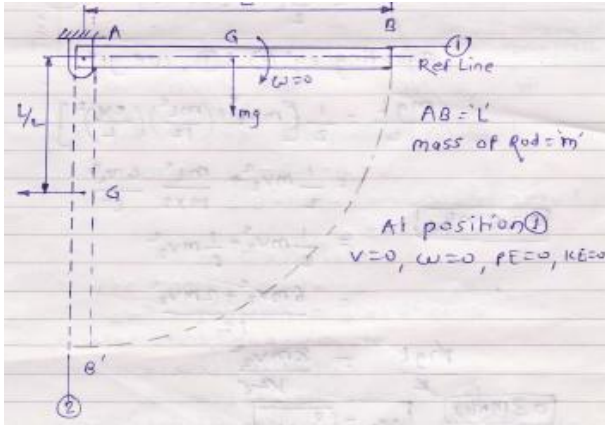 A
G
B
①
Ref Line
ω=0
mg
L/2
AB='L'
mass of Rod='m'
G
At position①
V=0, ω=0, PE=0, KE=0
B'
②